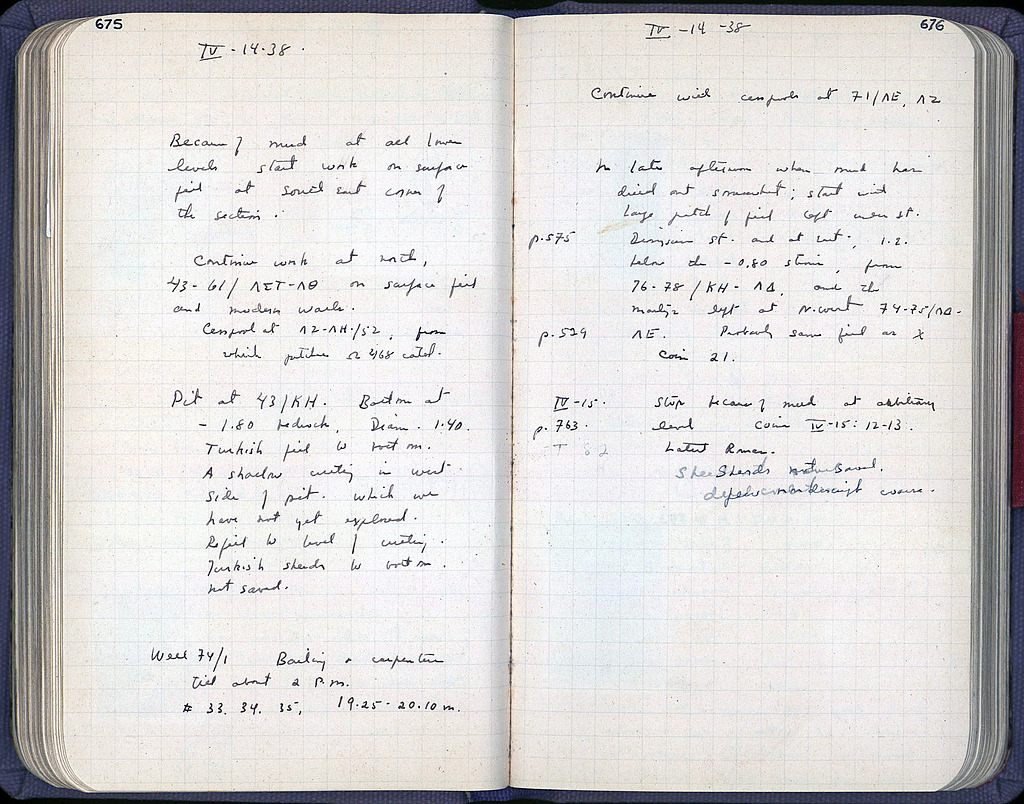 675
IV - 14·38 ·
Because of mud at all lower
levels start work on surface
fill at south east corner of
the section.
Continue work at north,
43 - 61 / ΛΣΤ-ΛΘ on surface fill
and modern walls.
Cesspool at ΛΖ-ΛΗ/52, from
which patches 468 cated.
Pit at 43/ΚΗ. Bottom at
- 1.80 bedrock, Diam. 1.40.
Turkish fill to bottom.
A shadow cutting in west
side of pit. which we
have not yet explored.
Refill to level of cutting.
Turkish sherds to bottom.
not saved.
Well 74/1 Bailing & carpentering
till about 2 P.M.
# 33. 34. 35, 19.25 - 20.10 m.
676
IV - 14 - 38
Continue with cesspools at 71/ΛΕ, ΛΖ
In late afternoon when mud has
dried out somewhat; start with
large patch of fill left under st.
p. 575 Dionysian st. and at ; 1.2.
below the -0.80 , from
76-78 / ΚΗ - ΛΔ, and the
left at N. 74-75/ΛΔ-
p. 529 ΛΕ. Probably same fill as X
Coin 21.
IV - 15. Stop because of mud at arbitrary
p. 763 level Coin IV-15: 12-13.
Τ 82 Latest Roman.
Sherds not saved.
coarse.